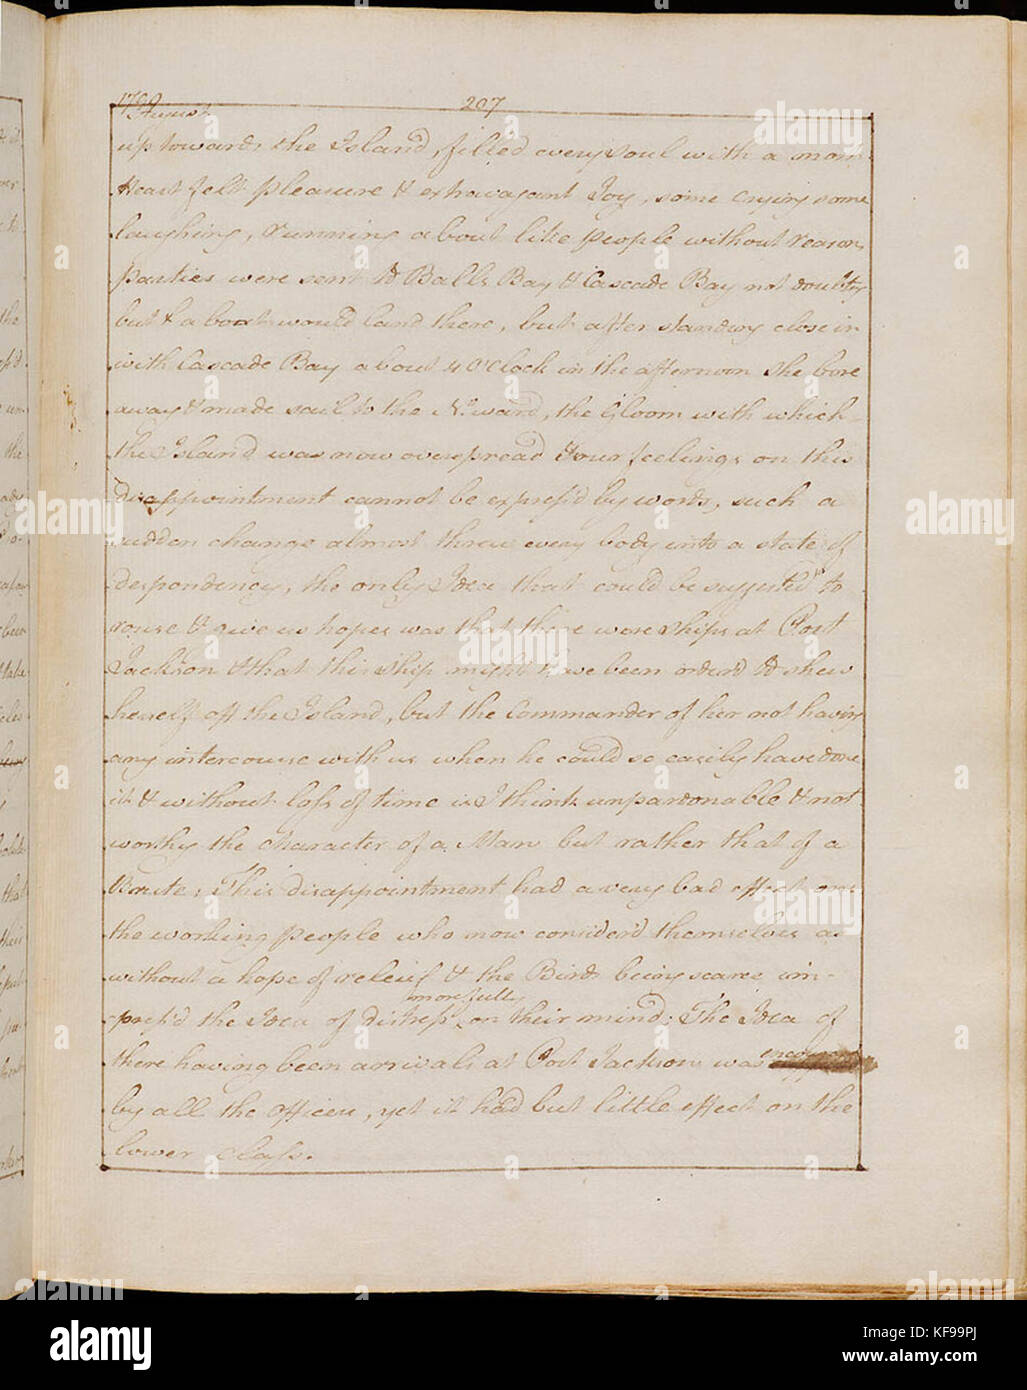 1790
207
August
up towards the Island, filled every soul with a most
Heart felt pleasure & extravagant Joy, some crying some
laughing, running about like people without reason,
parties were sent to Balls Bay & Cascade Bay not doubtg
but a boat would land there, but after standing close in
with Cascade Bay about 4 O'Clock in the afternoon she bore
away & made sail to the No. ward, the Gloom with which
the Island was now overspread & our feelings on this
disappointment cannot be express'd by words, such a
sudden change almost threw every body into a state of
despondency, the only Idea that could be suggested to
rouse & give us hopes was that there were ships at Port
Jackson & that this ship might have been order'd to shew
herself off the Island, but the Commander of her not having
any intercourse with us when he could so easily have done
it & without loss of time is I think unpardonable & not
worthy the character of a Man but rather that of a
Brute; This disappointment had a very bad effect on
the working people who now consider'd themselves as
without a hope of releif & the Birds being scarce im-
press'd the Idea of distress more fully on their mind; The Idea of
there having been arrivals at Port Jackson was
by all the officers, yet it had but little effect on the
lower class.
alamy
Image ID: KF99PJ
www.alamy.com